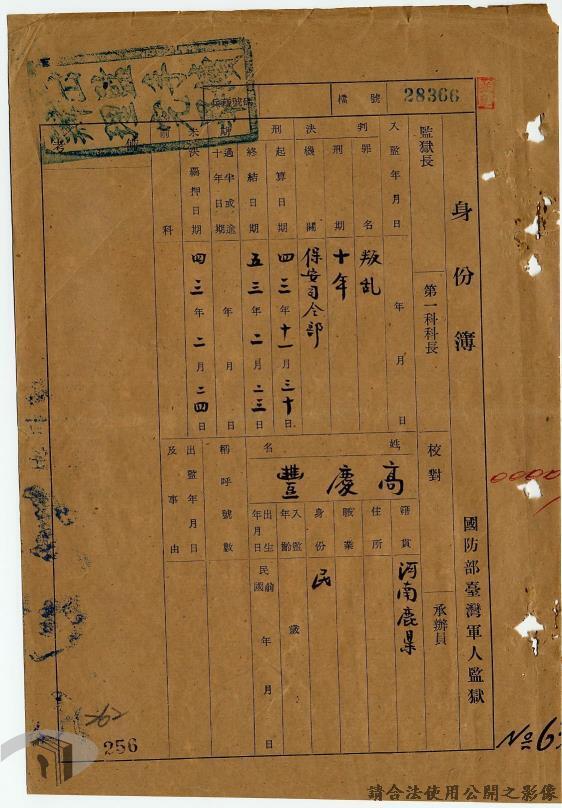 檔號 28366
身份簿
國防部臺灣軍人監獄
監獄長
第一科科長
校對
承辦員
入監年月日 年 月 日
判罪名 叛乱
刑期 十年
判決機關 保安司令部
刑期起算日期 四三年十一月三十日
刑期終結日期 五三年二月二三日
過半或逾十年日期 年 月 日
未決羈押日期 四三年二月二四日
前科
備考
姓名 高慶豐
籍貫 河南鹿
住所
職業
身份 民
入監年齡 歲
出生年月日 民國前 年 月 日
稱呼號數
出監年月日及事由
0000
No 6
262
256
請合法使用公開之影像